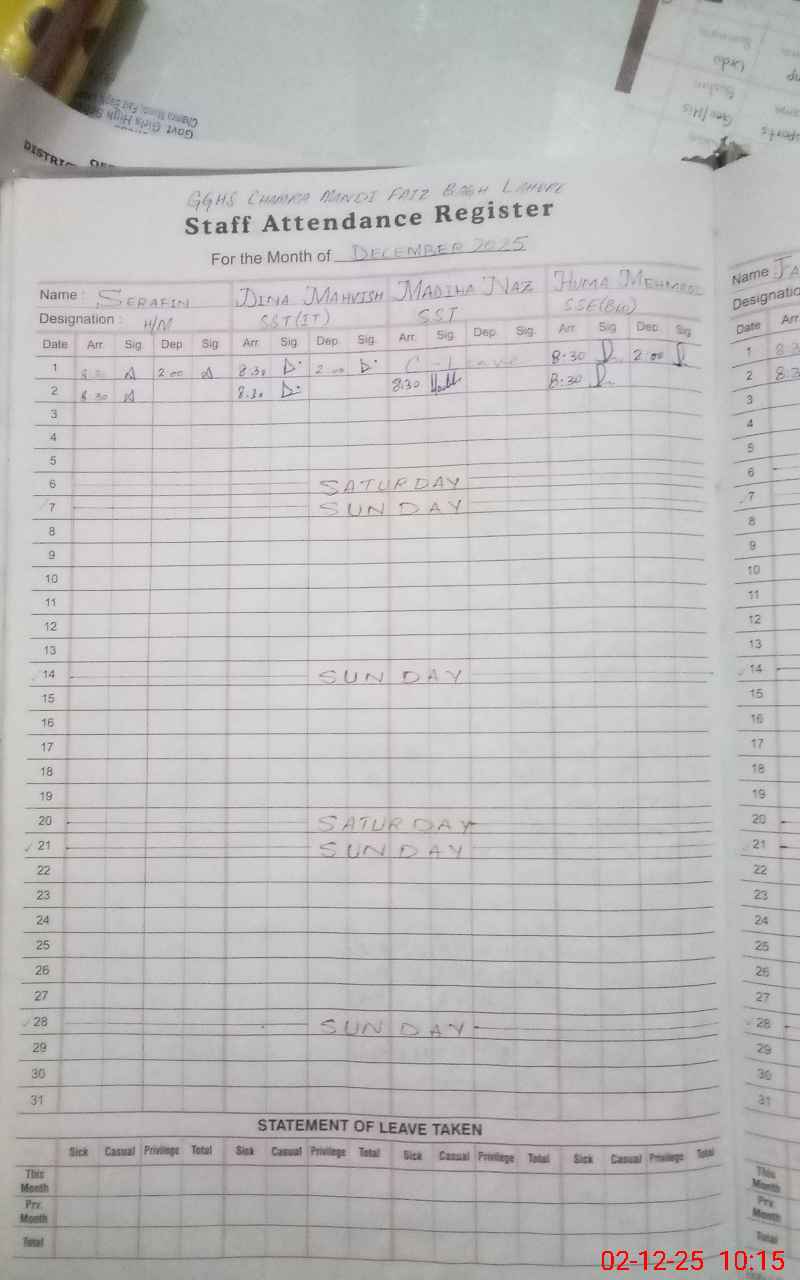 Urdu
Geo/His
Sports
Govt Girls High S
Chamra Mandi, Faiz Bagh
DISTRIC
GGHS CHAMRA MANDI FAIZ BAGH LAHORE
Staff Attendance Register
For the Month of DECEMBER 2025
Name : SERAFIN DINA MAHVISH MADIHA NAZ HUMA MEHMOOD
Designation : H/M SST(IT) SST SSE(Bio)
Date Arr. Sig. Dep. Sig. Arr. Sig. Dep. Sig. Arr. Sig. Dep. Sig. Arr. Sig. Dep. Sig.
1 8:30 2:00 8:30 D. 2:00 D. C-Leave 8:30 2:00
2 8:30 8:30 D. 8:30 8:30
3
4
5
6 SATURDAY
7 SUNDAY
8
9
10
11
12
13
14 SUNDAY
15
16
17
18
19
20 SATURDAY
21 SUNDAY
22
23
24
25
26
27
28 SUNDAY
29
30
31
STATEMENT OF LEAVE TAKEN
Sick Casual Privilege Total Sick Casual Privilege Total Sick Casual Privilege Total Sick Casual Privilege Total
This Month
Prv. Month
Total
Name : JA
Designatio
Date Arr.
1 8:3
2 8:3
3
4
5
6
7
8
9
10
11
12
13
14
15
16
17
18
19
20
21
22
23
24
25
26
27
28
29
30
31
This Month
Prv. Month
Total
02-12-25 10:15